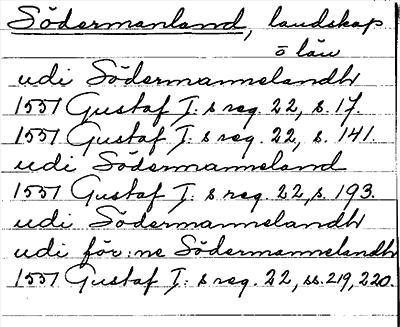 Södermanland, landskap
o län
udi Södermannelandh
1551 Gustaf I:s reg. 22, s. 17.
1551 Gustaf I:s reg. 22, s. 141.
udi Södermanneland
1551 Gustaf I:s reg. 22, s. 193.
udi Södermannelandh
udi för:ne Södermannelandh
1551 Gustaf I:s reg. 22, ss. 219, 220.